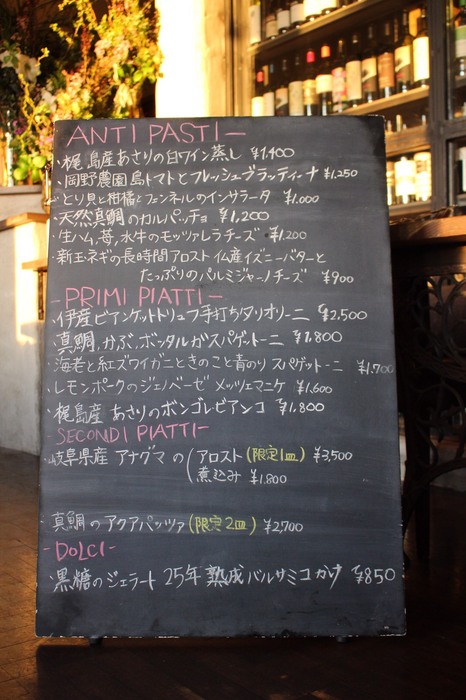 ANTI PASTI-
・梶島産あさりの白ワイン蒸し ¥1,400
・岡野農園島トマトとフレッシュブラッティーナ ¥1,250
・とり貝と柑橘とフェンネルのインサラータ ¥1,000
・天然真鯛のカルパッチョ ¥1,200
・生ハム、苺、水牛のモッツァレラチーズ ¥1,200
・新玉ネギの長時間アロスト 仏産イズニーバターと
たっぷりのパルミジャーノチーズ ¥900
-PRIMI PIATTI-
・伊産ビアンケットトリュフ手打ちタリオリーニ ¥2,500
・真鯛、かぶ、ボッタルガスパゲットーニ ¥1,800
海老と紅ズワイガニときのこと青のり スパゲットーニ ¥1,700
・レモンポークのジェノベーゼ メッツェマニケ ¥1,600
・梶島産 あさりのボンゴレビアンコ ¥1,800
-SECONDI PIATTI-
・岐阜県産 アナグマの アロスト (限定1皿) ¥3,500
煮込み ¥1,800
・真鯛のアクアパッツァ (限定2皿) ¥2,700
-DOLCI-
・黒糖のジェラート 25年熟成バルサミコかけ ¥850